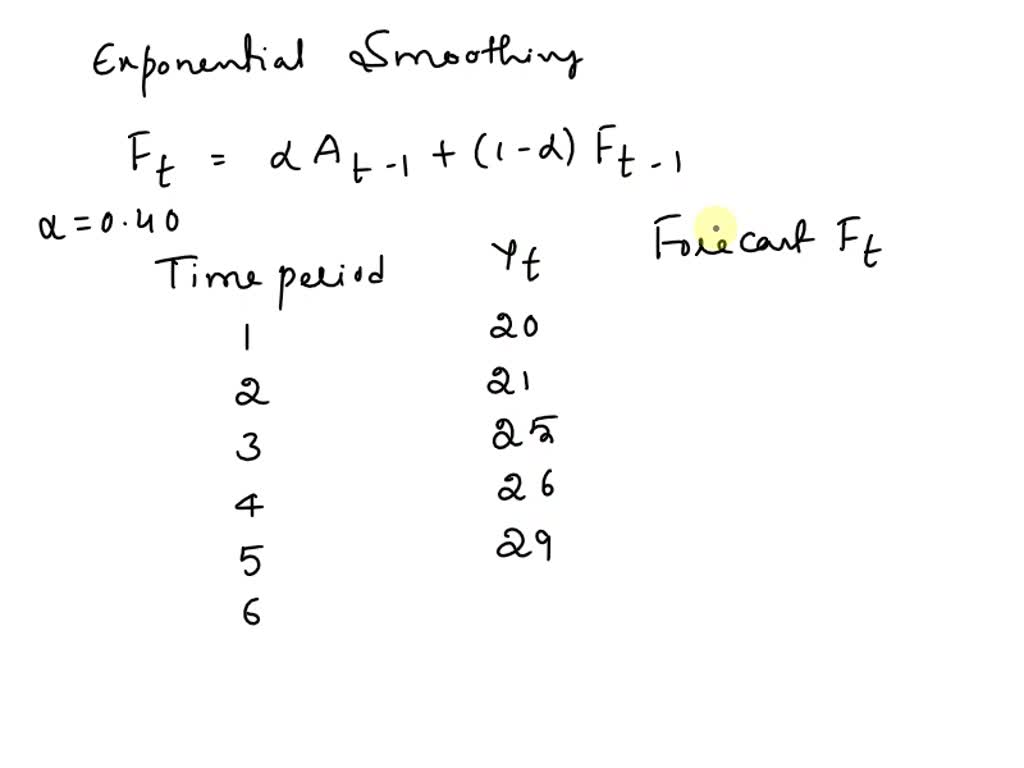 Exponential Smoothing
Ft = α At-1 + (1-α) Ft-1
α = 0.40
Time period Yt Forecast Ft
1 20
2 21
3 25
4 26
5 29
6